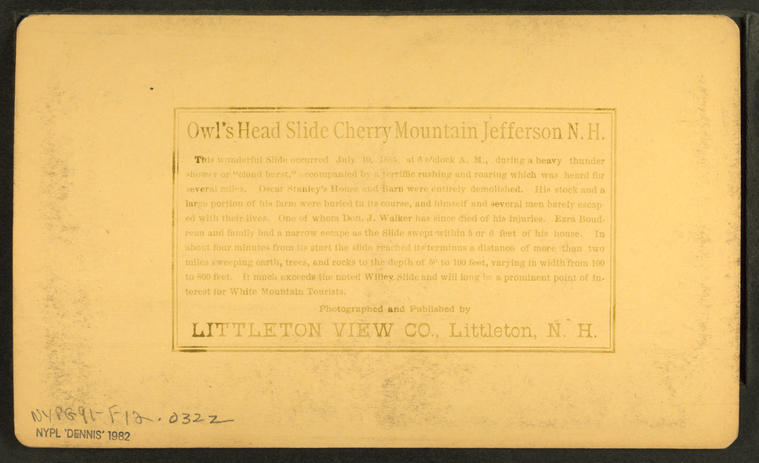 Owl's Head Slide Cherry Mountain Jefferson N. H.
This wonderful Slide occurred July 10, 1885, at 6 o'clock A. M., during a heavy thunder
shower or "cloud burst," accompanied by a terriffic rushing and roaring which was heard for
several miles. Oscar Stanley's House and Barn were entirely demolished. His stock and a
large portion of his farm were buried in its course, and himself and several men barely escap-
ed with their lives. One of whom Don. J. Walker has since died of his injuries. Ezra Boud-
reau and family had a narrow escape as the Slide swept within 5 or 6 feet of his house. In
about four minutes from its start the slide reached its terminus a distance of more than two
miles sweeping earth, trees, and rocks to the depth of to 100 feet, varying in width from 100
to 800 feet. It much exceeds the noted Willey Slide and will long be a prominent point of in-
terest for White Mountain Tourists.
Photographed and Published by
LITTLETON VIEW CO., Littleton, N. H.
NYPG91-F12.0322
NYPL 'DENNIS' 1982